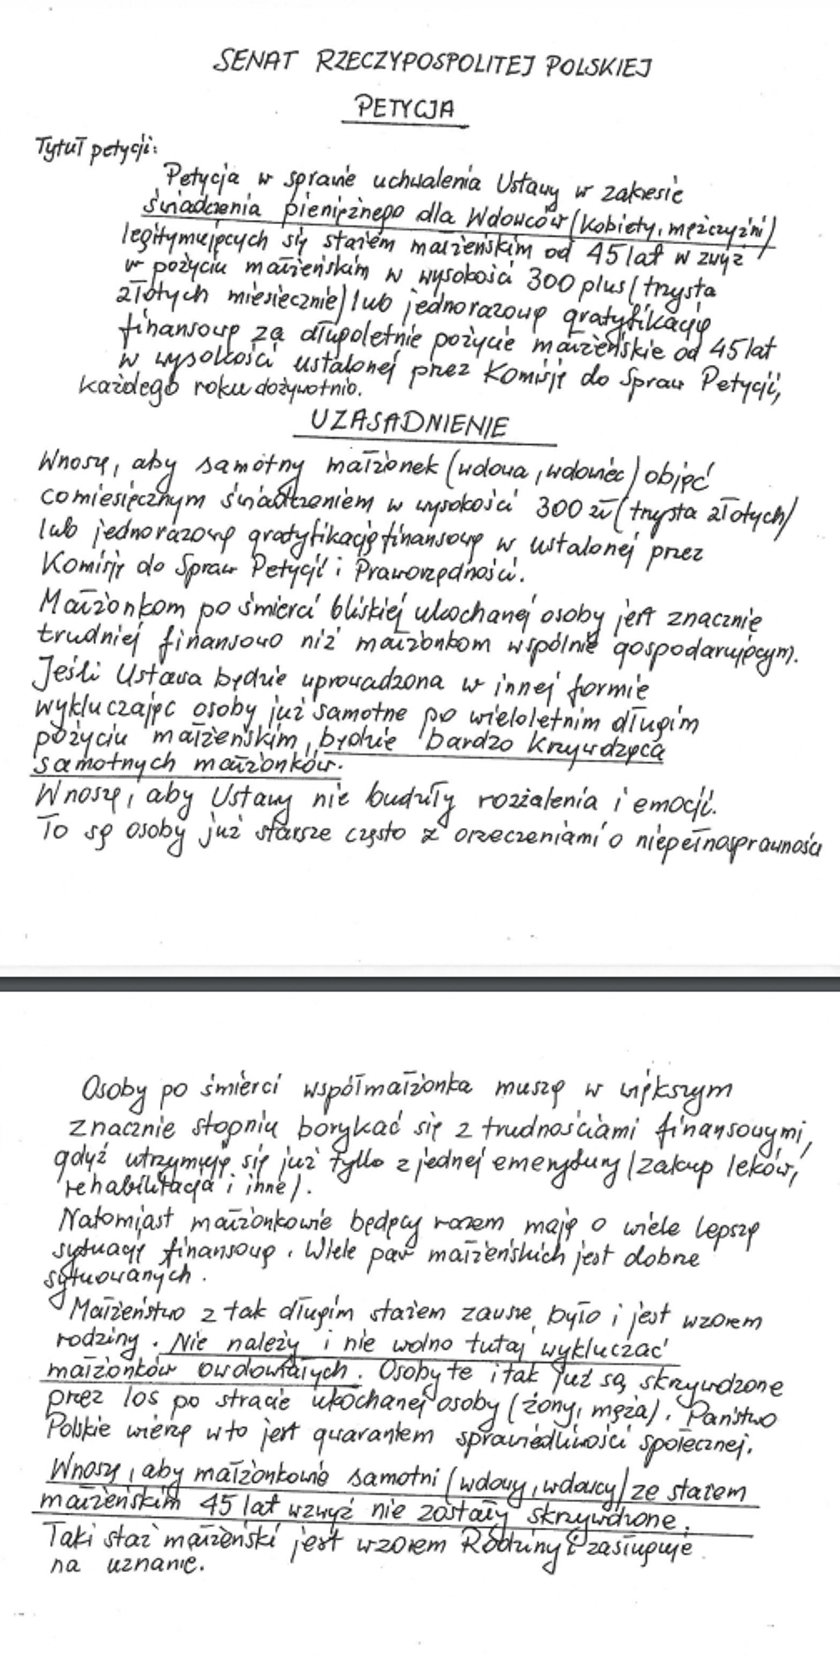 SENAT RZECZYPOSPOLITEJ POLSKIEJ
PETYCJA
Tytuł petycji:
Petycja w sprawie uchwalenia Ustawy w zakresie
świadczenia pieniężnego dla Wdowców (Kobiety, mężczyźni)
legitymujących się stażem małżeńskim od 45 lat w zwyż
w pożyciu małżeńskim w wysokości 300 plus (trzysta
złotych miesięcznie) lub jednorazową gratyfikację
finansową za długoletnie pożycie małżeńskie od 45 lat
w wysokości ustalonej przez Komisję do Spraw Petycji,
każdego roku dożywotnio.
UZASADNIENIE
Wnoszę, aby samotny małżonek (wdowa, wdowiec) objąć
comiesięcznym świadczeniem w wysokości 300 zł (trzysta złotych)
lub jednorazową gratyfikację finansową w ustalonej przez
Komisję do Spraw Petycji i Praworządności.
Małżonkom po śmierci bliskiej ukochanej osoby jest znacznie
trudniej finansowo niż małżonkom wspólnie gospodarującym.
Jeśli Ustawa będzie wprowadzona w innej formie
wykluczając osoby już samotne po wieloletnim długim
pożyciu małżeńskim, będzie bardzo krzywdzącą
samotnych małżonków.
Wnoszę, aby Ustawy nie budziły rozżalenia i emocji.
To są osoby już starsze często z orzeczeniami o niepełnosprawności
Osoby po śmierci współmałżonka muszą w większym
znacznie stopniu borykać się z trudnościami finansowymi,
gdyż utrzymują się już tylko z jednej emerytury (zakup leków,
rehabilitacja i inne).
Natomiast małżonkowie będący razem mają o wiele lepszą
sytuację finansową. Wiele par małżeńskich jest dobrze
sytuowanych.
Małżeństwo z tak długim stażem zawsze było i jest wzorem
rodziny. Nie należy i nie wolno tutaj wykluczać
małżonków owdowiałych. Osoby te i tak już są skrzywdzone
przez los po stracie ukochanej osoby (żony, męża). Państwo
Polskie wierzę w to jest gwarantem sprawiedliwości społecznej.
Wnoszę, aby małżonkowie samotni (wdowy, wdowcy) ze stażem
małżeńskim 45 lat wzwyż nie zostały skrzywdzone.
Taki staż małżeński jest wzorem Rodziny i zasługuje
na uznanie.